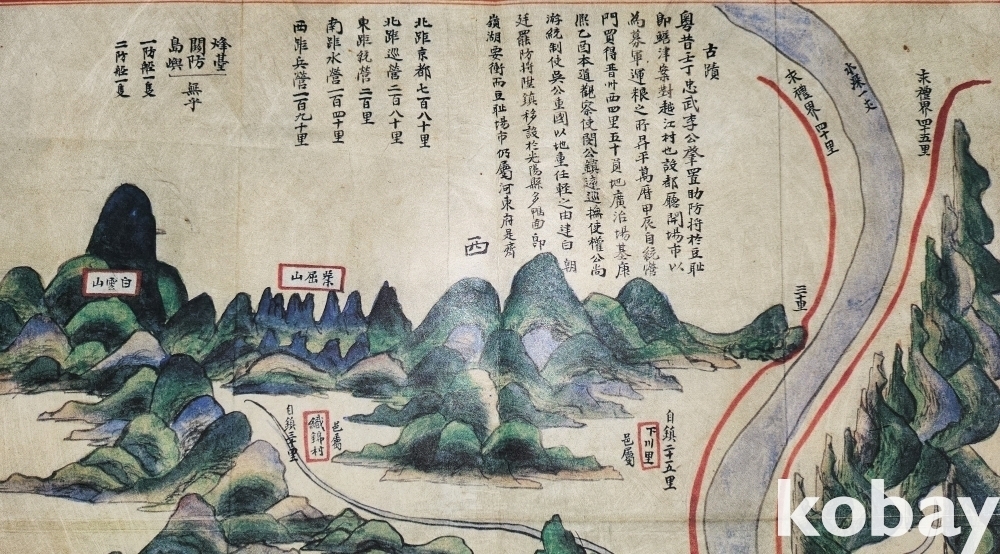 古蹟
粤昔壬丁忠武李公肇置助防將於豆恥
即蟾津案對越江村也設都廳開場市以
為募軍運粮之所昇平萬曆甲辰自統營
門買得晋州西四里五十員地廣治場基康
熙乙酉本道觀察使閔公鎮遠巡撫使權公尚
游統制使吳公重國以地重任軽之由建白 朝
廷罷防將陞鎮移設於光陽縣多鴨面即
嶺湖要衝而豆恥場市仍屬河東府是齊
北距京都七百八十里
北距巡營二百八十里
東距統營二百里
南距水營一百四十里
西距兵營一百九十里
烽臺
關防 無乎
島嶼
一防船一隻
二防船一隻
求禮界四十里
求禮界四十五里
西
白雲山
山屈
自鎮二十里
鐵錦村
邑屬
自鎮二十五里
下川里
邑屬
kobay